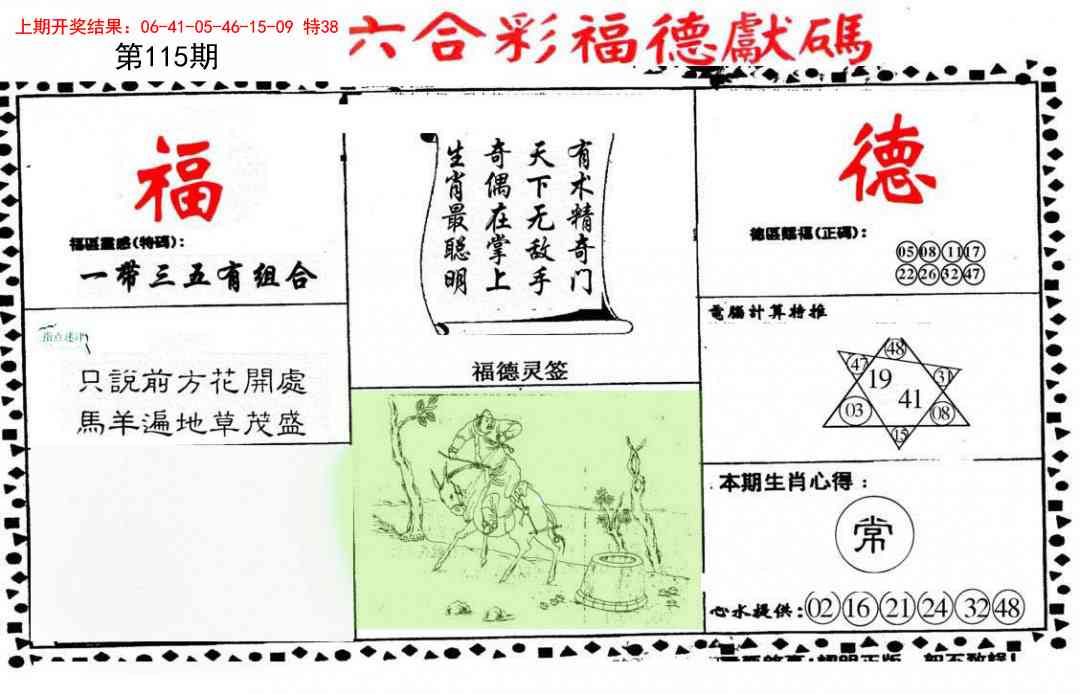 上期开奖结果：06-41-05-46-15-09 特38
第115期
六合彩福德獻碼
福
福區靈感(特碼)：
一帶三五有组合
只說前方花開處
馬羊遍地草茂盛
有术精奇门
天下无敌手
奇偶在掌上
生肖最聪明
福德灵签
德
德區賜福(正碼)：
05 08 11 17
22 26 32 47
電腦計算特推
48
47 19 31
03 41 08
15
本期生肖心得：
常
心水提供：02 16 21 24 32 48